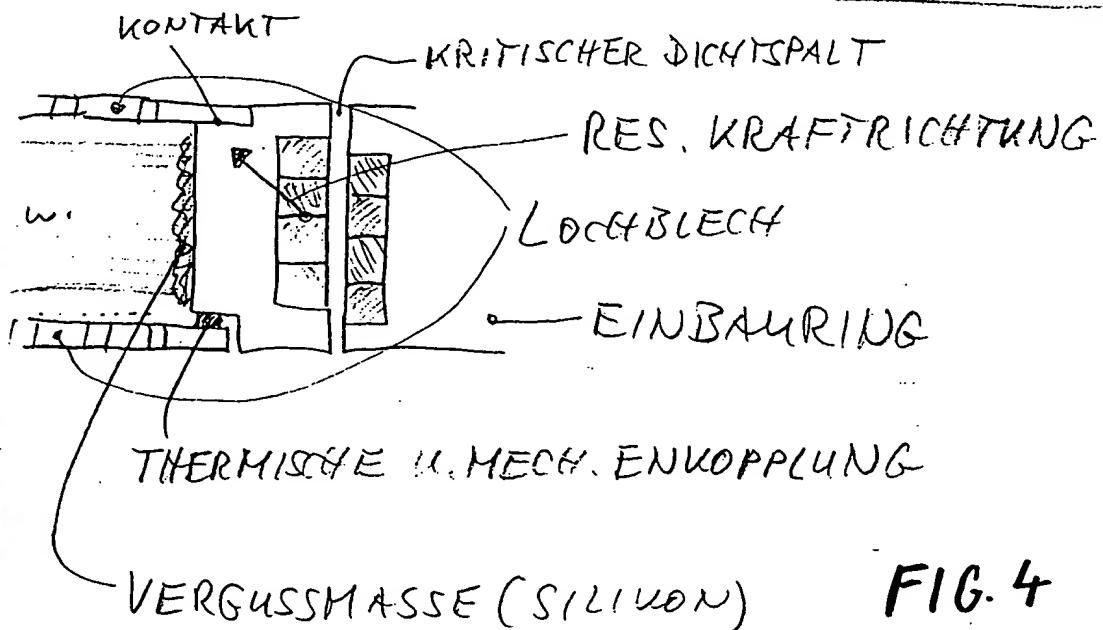 KONTAKT
KRITISCHER DICHTSPALT
RES. KRAFTRICHTUNG
W.
LOCHBLECH
EINBAURING
THERMISCHE U. MECH. ENKOPPLUNG
VERGUSSMASSE (SILIKON)
FIG. 4